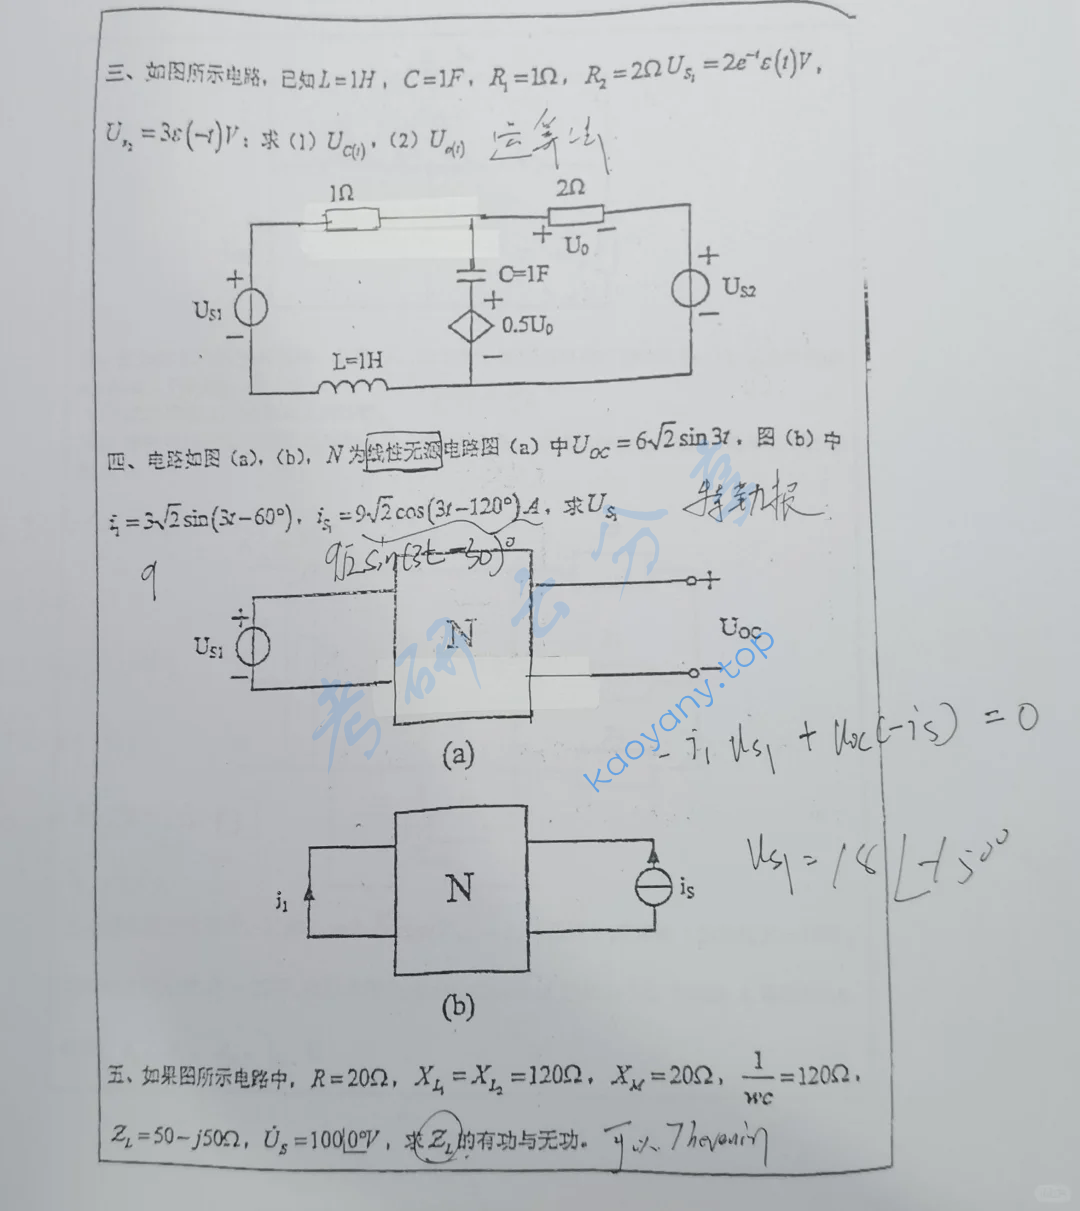 三、如图所示电路，已知L=1H，C=1F，R₁=1Ω，R₂=2Ω U_{S₁}=2e^{-t}ε(t)V，
U_{s₂}=3ε(-t)V；求（1）U_{C(t)}，（2）U_{o(t)} 运算法
1Ω
2Ω
+ U₀ −
+
U_{S1}
−
C=1F
+
0.5U₀
−
+
U_{S2}
−
L=1H
四、电路如图（a），（b），N为线性无源电路图（a）中U_{OC}=6√2sin3t，图（b）中
i₁=3√2sin(3t−60°)，i_{S₁}=9√2cos(3t−120°)A，求U_{S₁} 特勒根
9√2sin(3t−30)°
9
+
U_{S1}
−
N
+
U_{OC}
−
(a)
考研云分享
kaoyany.top
−i₁ u_{s1} + u_{oc}(−i_s) = 0
i₁
N
i_S
(b)
五、如果图所示电路中，R=20Ω，X_{L₁}=X_{L₂}=120Ω，X_M=20Ω，1/wc=120Ω，
Z_L=50−j50Ω，U̇_S=100|0°V，求Z_L的有功与无功。 可以 Thevenin